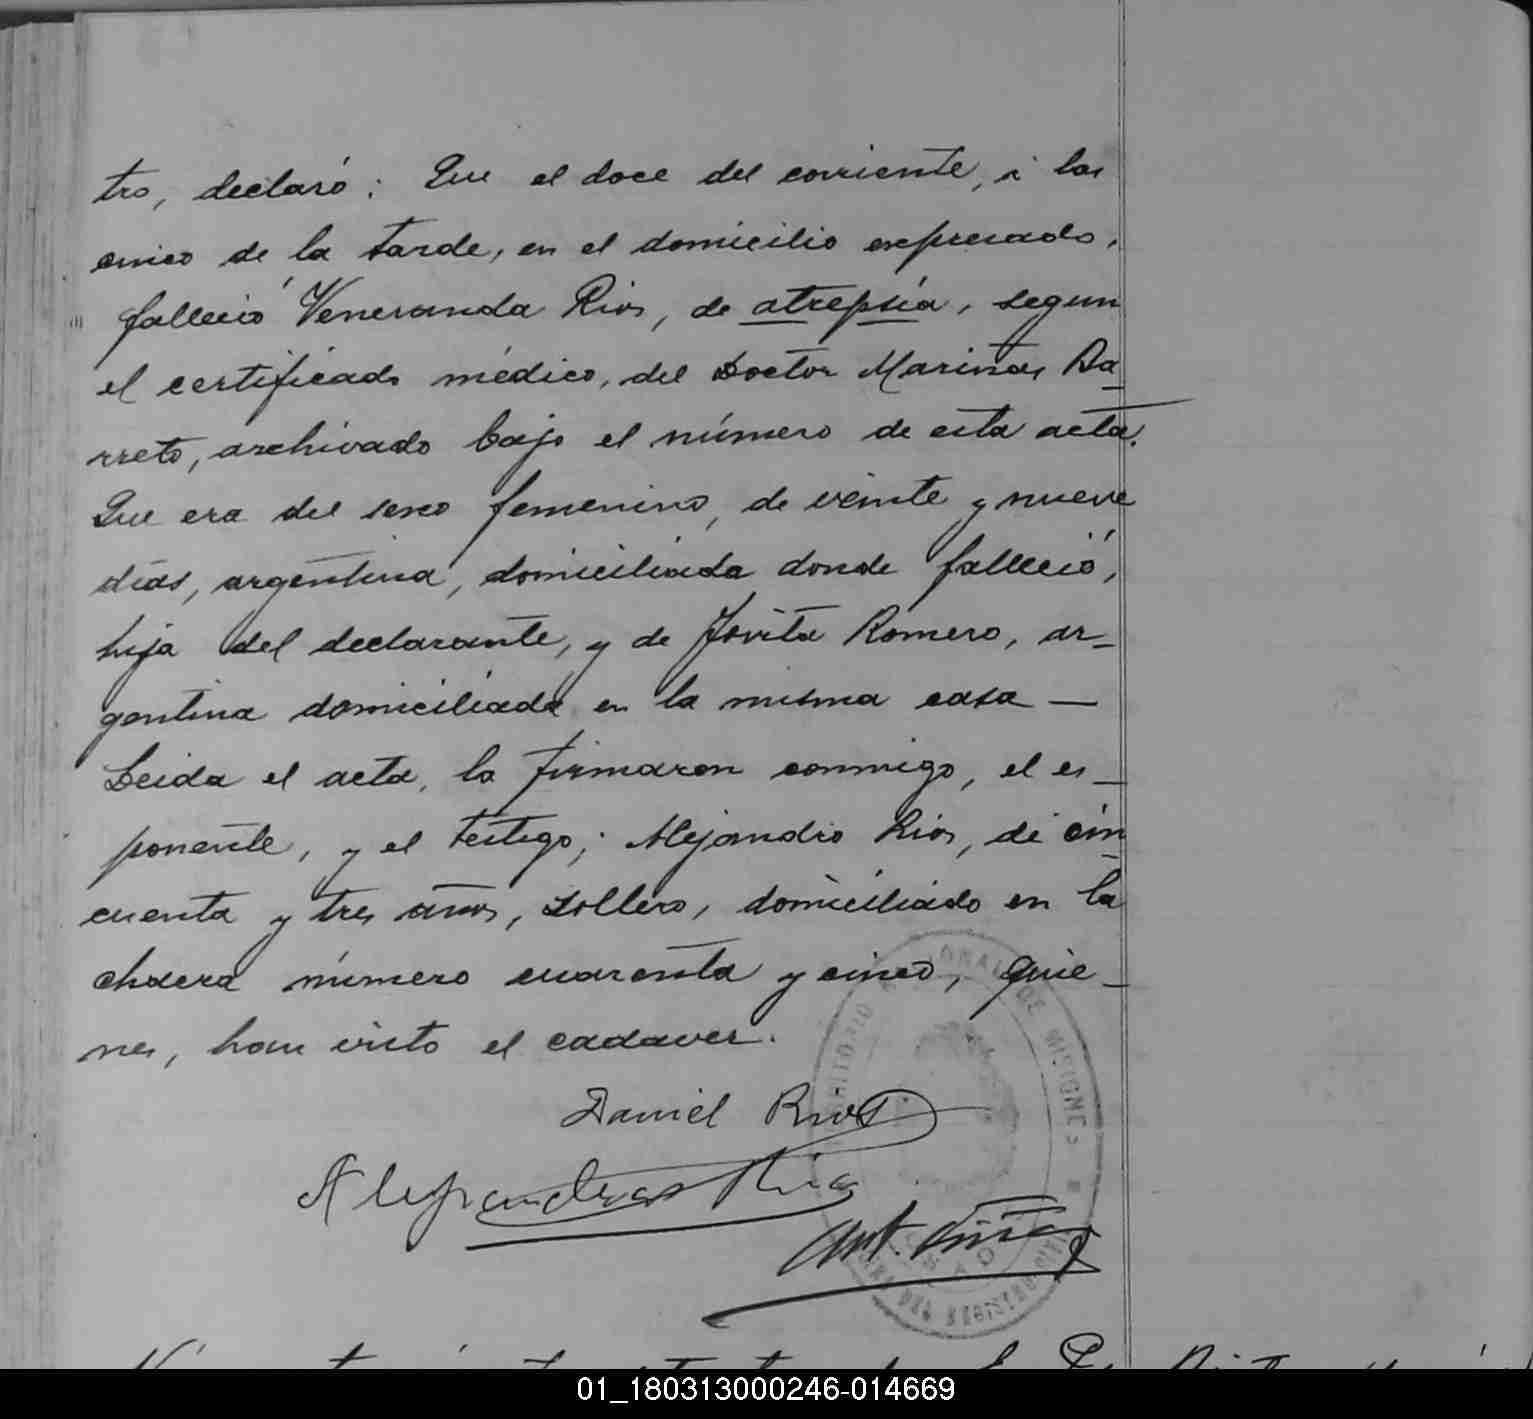 tro, declaró: Que el doce del corriente, á las
cinco de la tarde, en el domicilio expresado,
falleció Veneranda Rios, de atrepsía, segun
el certificado médico, del Doctor Mariñas Ba-
rreto, archivado bajo el número de esta acta.
Que era del sexo femenino, de veinte y nueve
días, argentina, domiciliada donde falleció,
hija del declarante, y de Jovita Romero, ar-
gentina domiciliada en la misma casa —
Leida el acta, la firmaron conmigo, el es-
ponente, y el testigo; Alejandro Rios, de cin-
cuenta y tres años, soltero, domiciliado en la
chacra número cuarenta y cinco, quie-
nes, han visto el cadaver.
Daniel Rios
Alejandro Rios
Ant.
DE MISIONES
DEL REGISTRO CIVIL
01_180313000246-014669